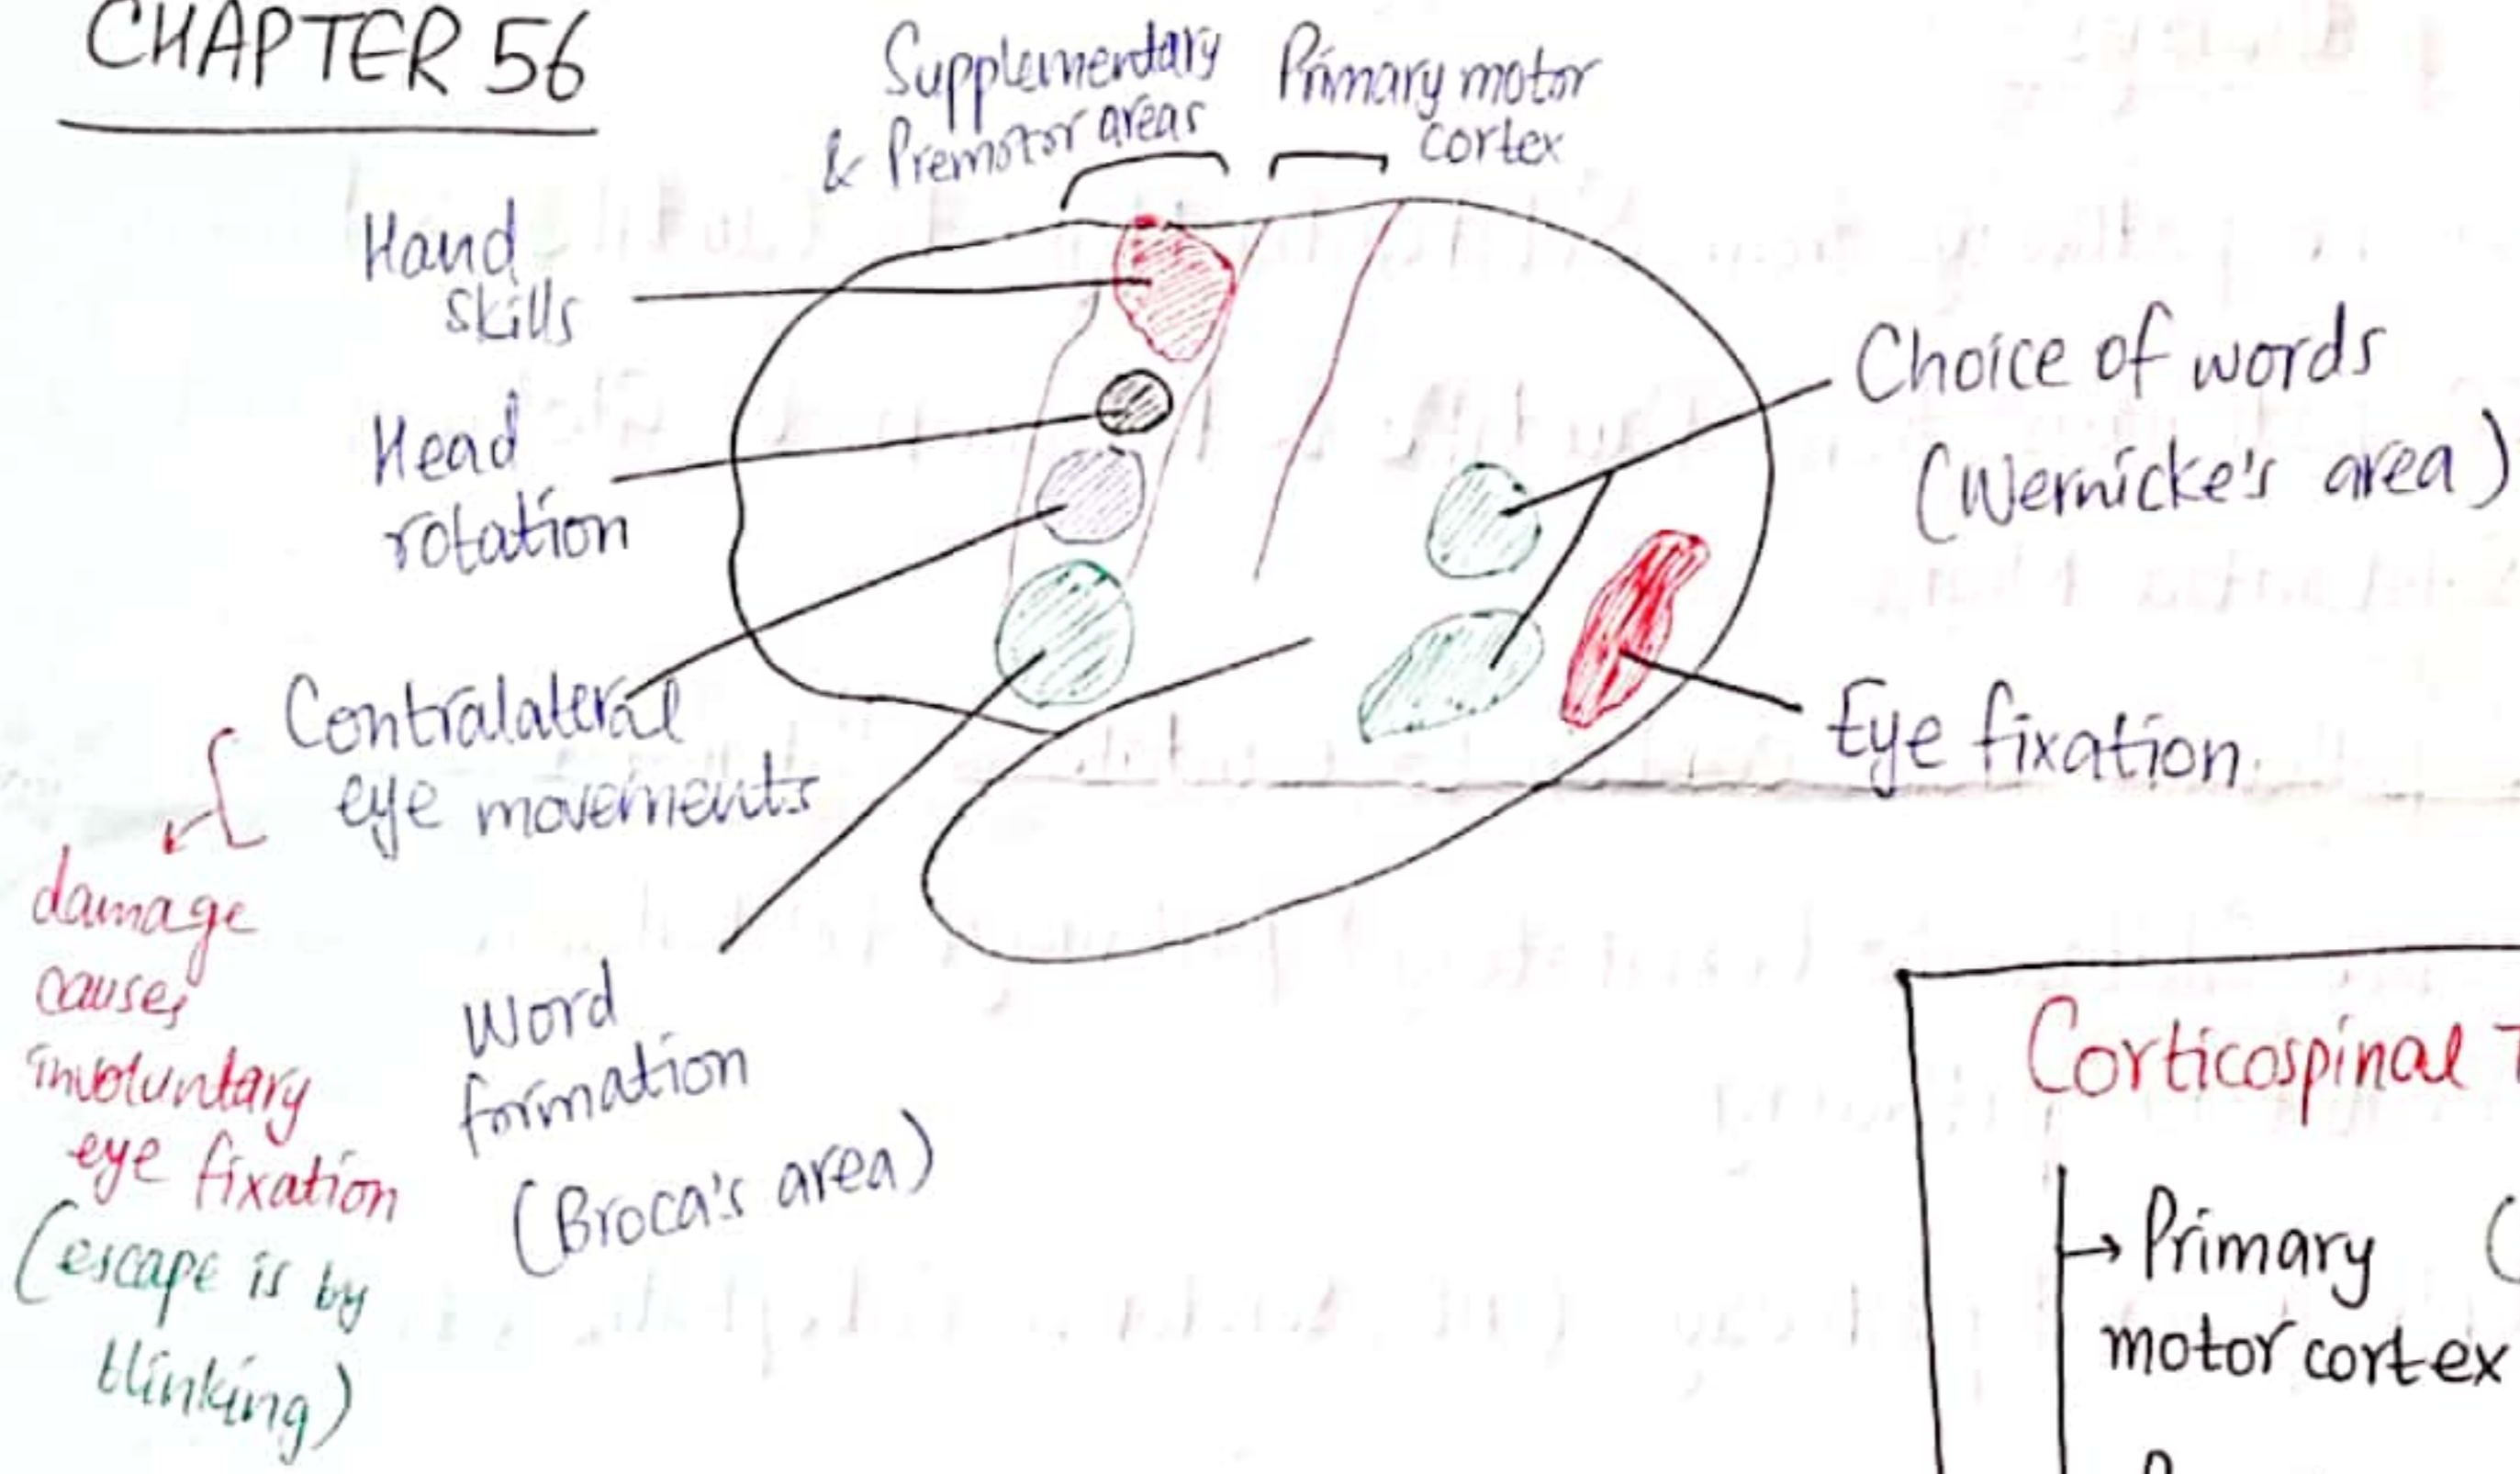 CHAPTER 56
Supplementary
& Premotor areas
Primary motor
cortex
Hand
skills
Head
rotation
Contralateral
eye movements
damage
causes
involuntary
eye fixation
(escape is by
blinking)
Word
formation
(Broca's area)
Choice of words
(Wernicke's area)
Eye fixation.
Corticospinal
→ Primary (
motor cortex